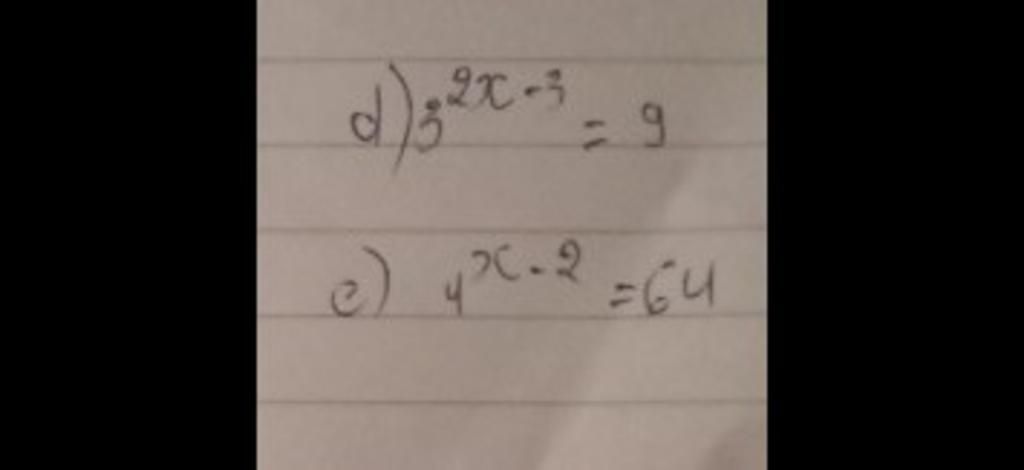 d) 3^{2x-3} = 9
e) 4^{x-2} = 64